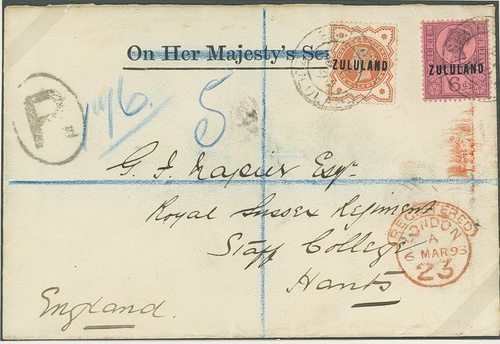 On Her Majesty's Se
ZULULAND
ZULULAND
6
R
5
G. F. Napier Esqr.
Royal Sussex Regiment
Staff College
Hants
England.
REGISTERED
LONDON
A
6 MAR 93
23